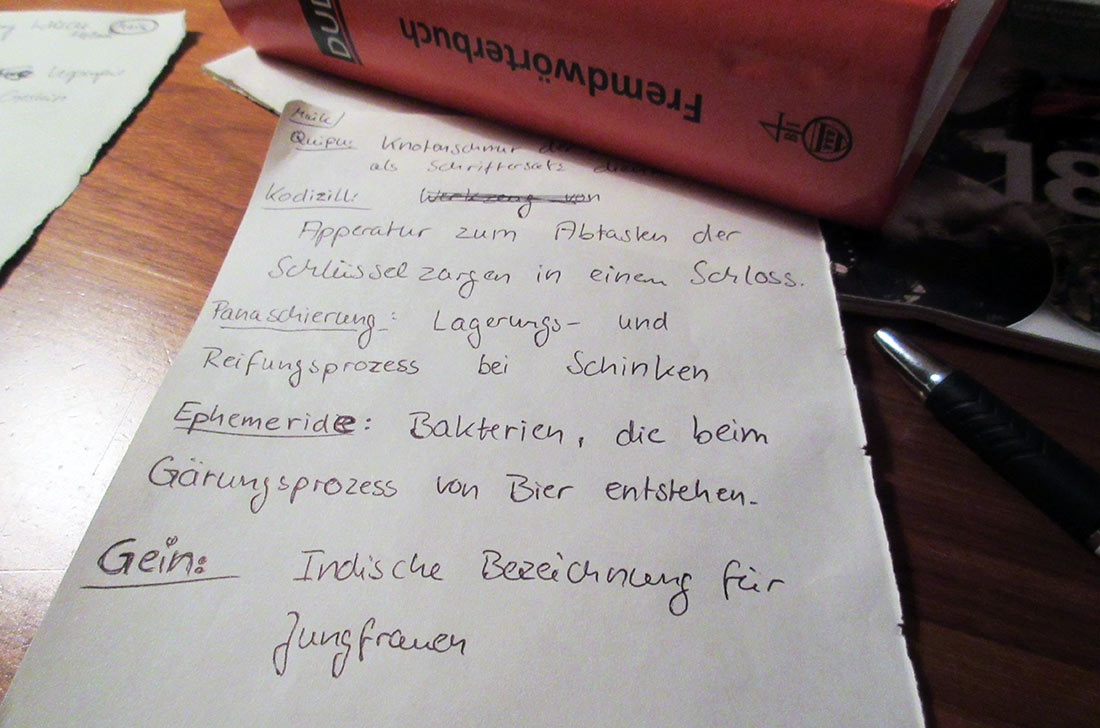 DUD
Fremdwörterbuch
BI
18
Maik
Quipu: Knotenschnur der
als Schriftersatz
Kodizill: Werkzeug von
Apperatur zum Abtasten der
Schlüsselzargen in einem Schloss.
Panaschierung: Lagerungs- und
Reifungsprozess bei Schinken
Ephemeride: Bakterien, die beim
Gärungsprozess von Bier entstehen.
Gein: Indische Bezeichnung für
Jungfrauen